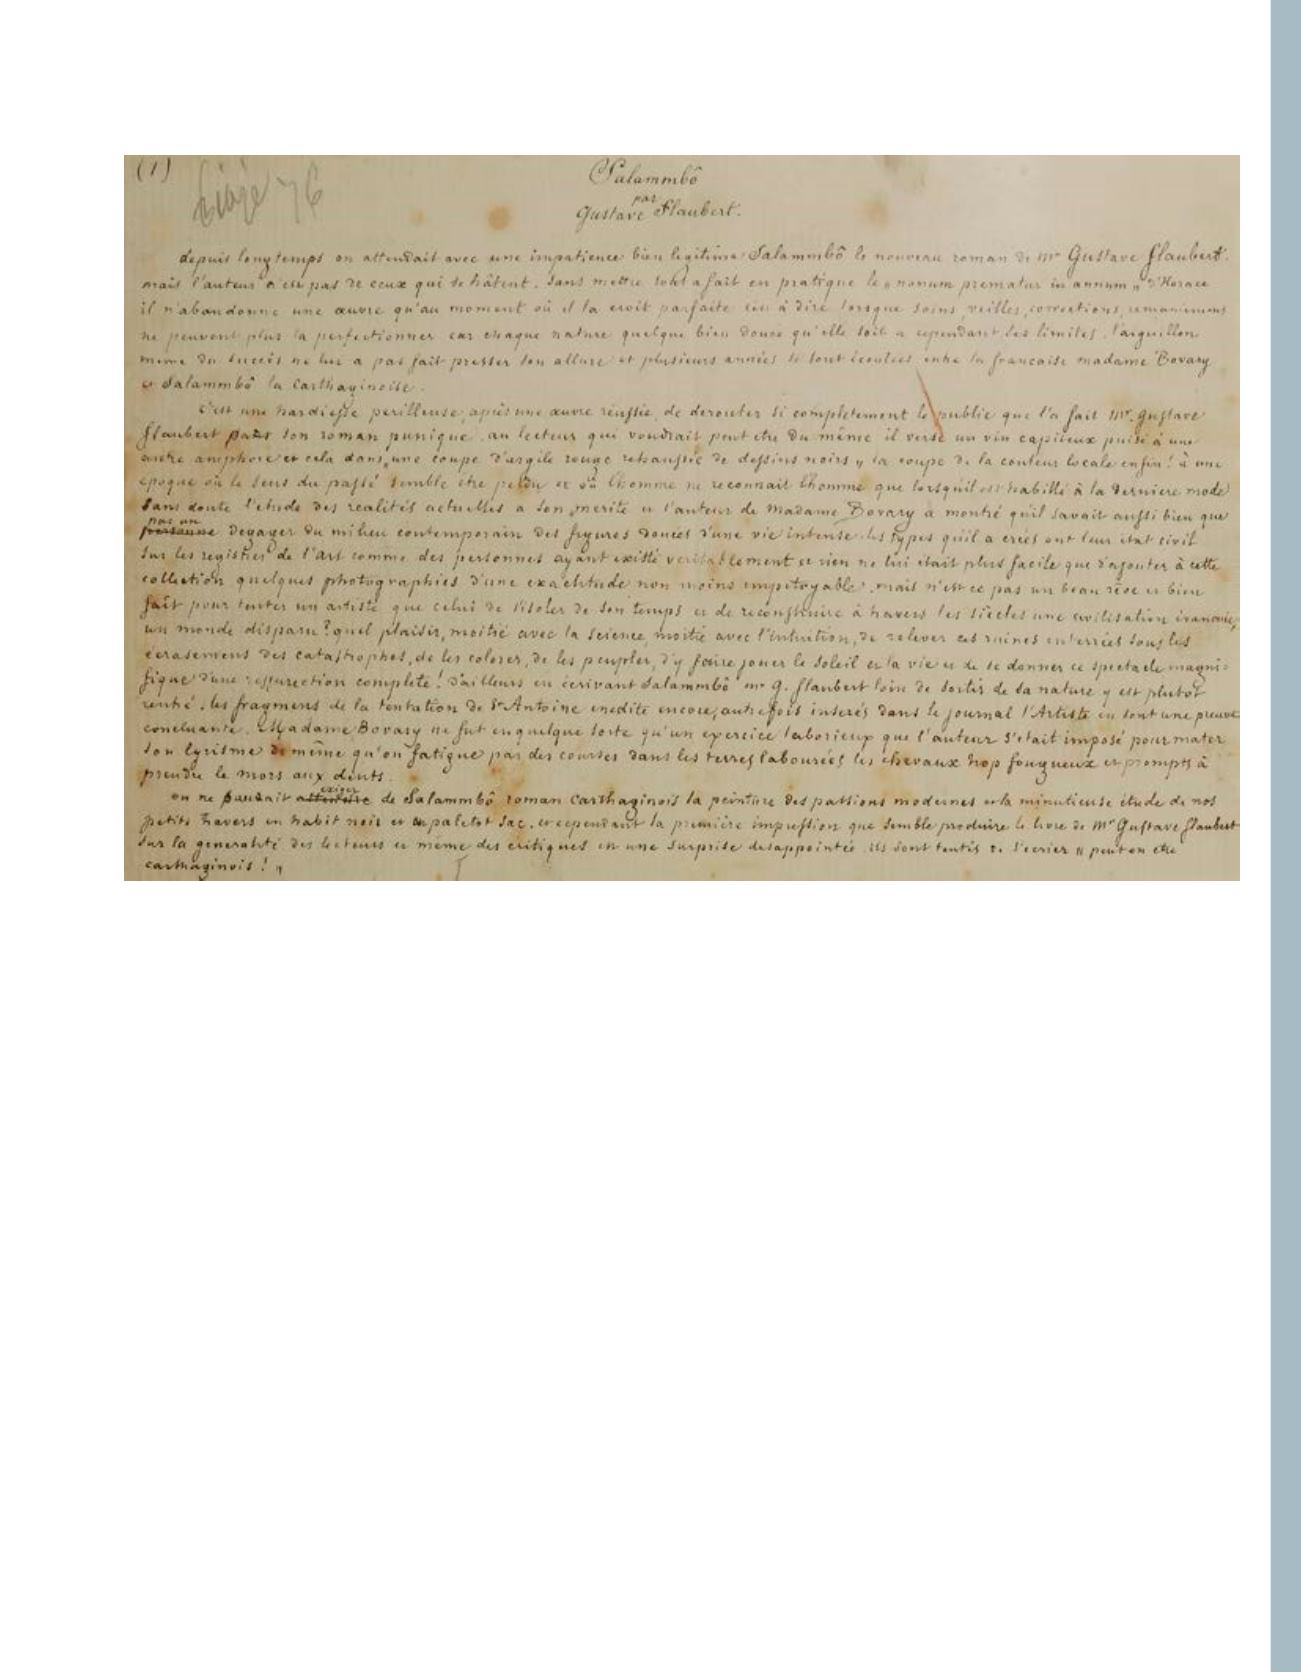 (1)
Salammbô
par
Gustave Flaubert.
depuis longtemps on attendait avec une impatience bien legitime Salammbô le nouveau roman de Mr Gustave Flaubert.
mais l'auteur n'est pas de ceux qui se hâtent. Sans mettre tout a fait en pratique le "nonum prematur in annum" d'Horace
il n'abandonne une œuvre qu'au moment où il la croit parfaite c'est à dire lorsque soins, veilles, corrections, remaniemens
ne peuvent plus la perfectionner car chaque nature quelque bien douée qu'elle soit a cependant ses limites. l'aiguillon
même du succès ne lui a pas fait presser son allure et plusieurs années se sont écoulées entre la francaise madame Bovary
et Salammbô la Carthaginoise.
c'est une hardiesse perilleuse, après une œuvre réussie, de derouter si completement le publie que l'a fait Mr. Gustave
Flaubert par son roman punique. au lecteur qui voudrait peut etre du même il verse un vin capiteux puisé à une
autre amphore et cela dans "une coupe d'argile rouge rehaussée de dessins noirs" la coupe de la couleur locale enfin! à une
epoque où le sens du passé semble être perdu et où l'homme ne reconnait l'homme que lorsqu'il est habillé à la derniere mode
sans doute l'etude des réalités actuelles a son merite et l'auteur de Madame Bovary à montré qu'il savait aussi bien que
pas un
personne degager du milieu contemporain des figures douées d'une vie intense. les types qu'il a créés ont leur état civil
sur les registres de l'art comme des personnes ayant existé veritablement et rien ne lui était plus facile que d'ajouter à cette
collection quelques photographies d'une exactitude non moins impitoyable. mais n'est ce pas un beau rêve et bien
fait pour tenter un artiste que celui de s'isoler de son temps et de reconstruire à travers les siècles une civilisation évanouie,
un monde disparu? quel plaisir, moitié avec la science, moitié avec l'intuition, de relever ces ruines enterrées sous les
ecrasemens des catastrophes, de les colorer, de les peupler, d'y faire jouer le soleil et la vie et de se donner ce spectacle magni-
fique d'une ressurection complète! d'ailleurs en écrivant Salammbô mr G. Flaubert loin de sortir de sa nature y est plutôt
rentré. les fragmens de la tentation de St Antoine inedite encore, autrefois inserés dans le journal l'Artiste en sont une preuve
concluante. Madame Bovary ne fut en quelque sorte qu'un exercice laborieux que l'auteur s'etait imposé pour mater
son lyrisme de même qu'on fatigue par des courses dans les terres labourées les chevaux trop fougueux et prompts à
prendre le mors aux dents.
exiger
on ne pouvait attendre de Salammbô roman Carthaginois la peinture des passions modernes et la minutieuse étude de nos
petits travers en habit noir et en paletot sac. et cependant la première impression que semble produire le livre de Mr Gustave Flaubert
sur la generalité des lecteurs et même des critiques est une surprise desappointée. ils sont tentés de s'ecrier " peut on etre
carthaginois! "